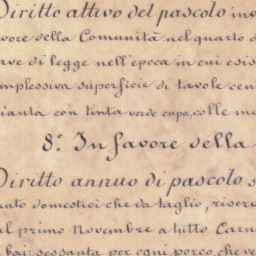 Diritto attivo del pascolo inv
vore della Comunità nel quarto d
rve di legge nell'epoca in cui esis
mplessiva superficie di tavole cen
ianta con tinta verde cupa, colle m
8.° In favore della
Diritto annuo di pascolo s
anto domestici che da taglio, riserv
al primo Novembre a tutto Carn
baj: sessanta per ogni porco, che ve